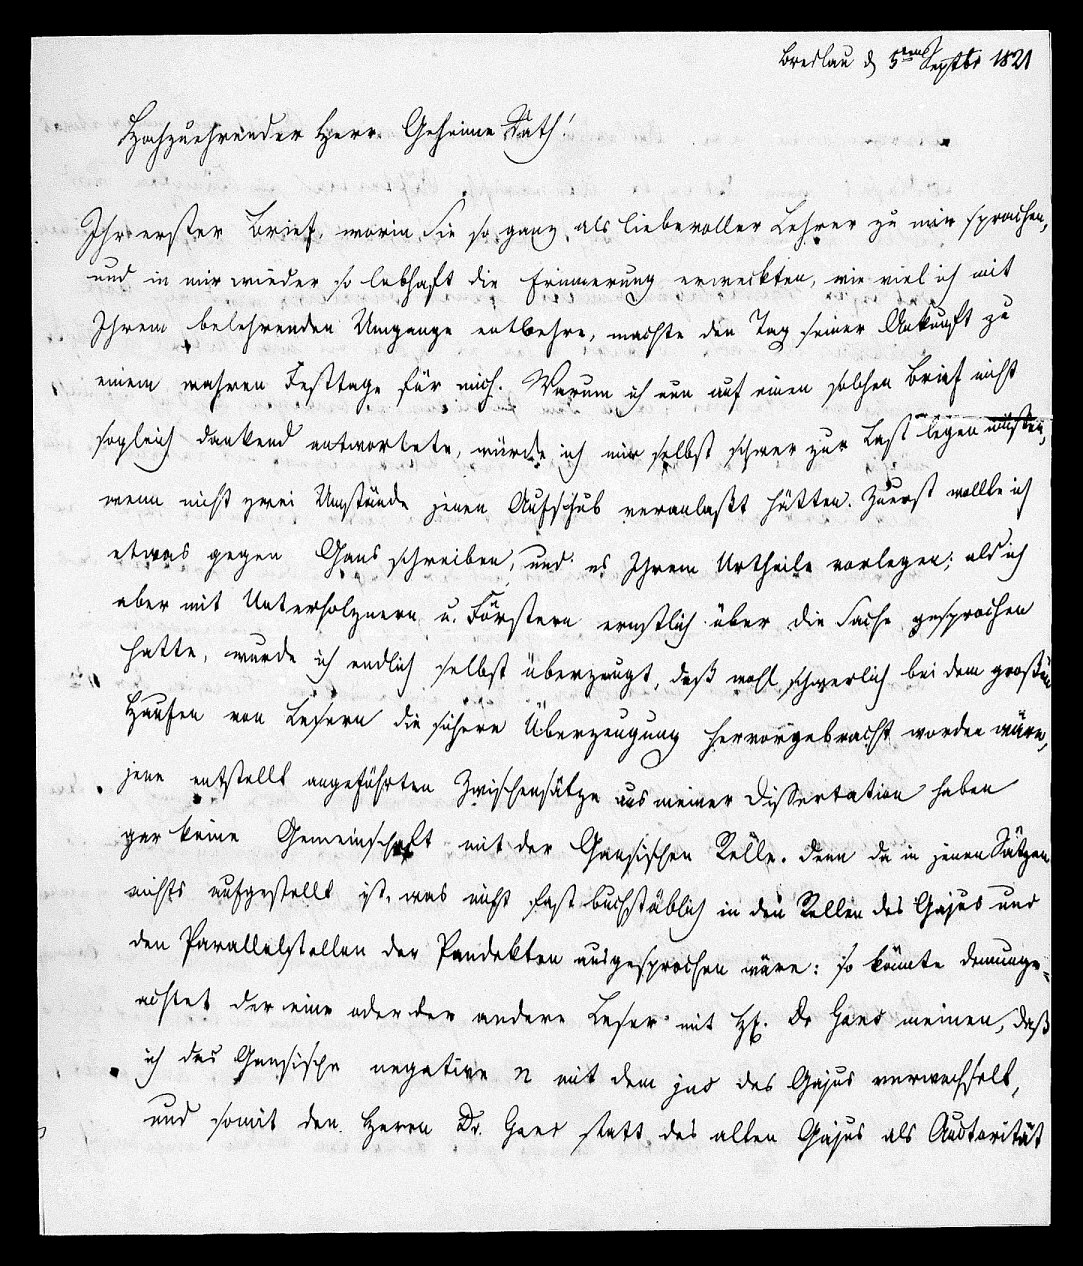 Breslau d 5ten Septbr 1821
Hochzuehrender Herr Geheime Rath!
Ihr erster Brief, worin Sie so ganz als liebevoller Lehrer zu mir sprachen,
und in mir wieder so lebhaft die Erinnerung erweckten, wie viel ich mit
Ihrem belehrenden Umgange entbehre, machte den Tag seiner Ankunft zu
einem wahren Festtage für mich. Warum ich nun auf einen solchen Brief nicht
sogleich dankend antwortete, würde ich mir selbst schwer zur Last legen müssen,
wenn nicht zwei Umstände jenen Aufschub veranlaßt hätten. Zuerst wollte ich
etwas gegen Gans schreiben, und es Ihrem Urtheile vorlegen; als ich
aber mit Unterholznern u. Förstern ernstlich über die Sache gesprochen
hatte, wurde ich endlich selbst überzeugt, daß wohl schwerlich bei dem großen
Haufen von Lesern die sichere Überzeugung hervorgebracht worden wäre,
jene entstellt angeführten Zwischensätze aus meiner Dissertation haben
gar keine Gemeinschaft mit der Gansischen Rolle. Denn da in jenen Sätzen
nichts aufgestellt ist, was nicht fast buchstäblich in den Stellen des Gajus und
den Parallelstellen der Pandekten ausgesprochen wäre: so könnte demunge-
achtet der eine oder der andere Leser mit H. Dr Gans meinen, daß
ich das Gansische negative n mit dem jus des Gajus verwechselt,
und somit den Herrn Dr. Gans statt des alten Gajus als Auctorität